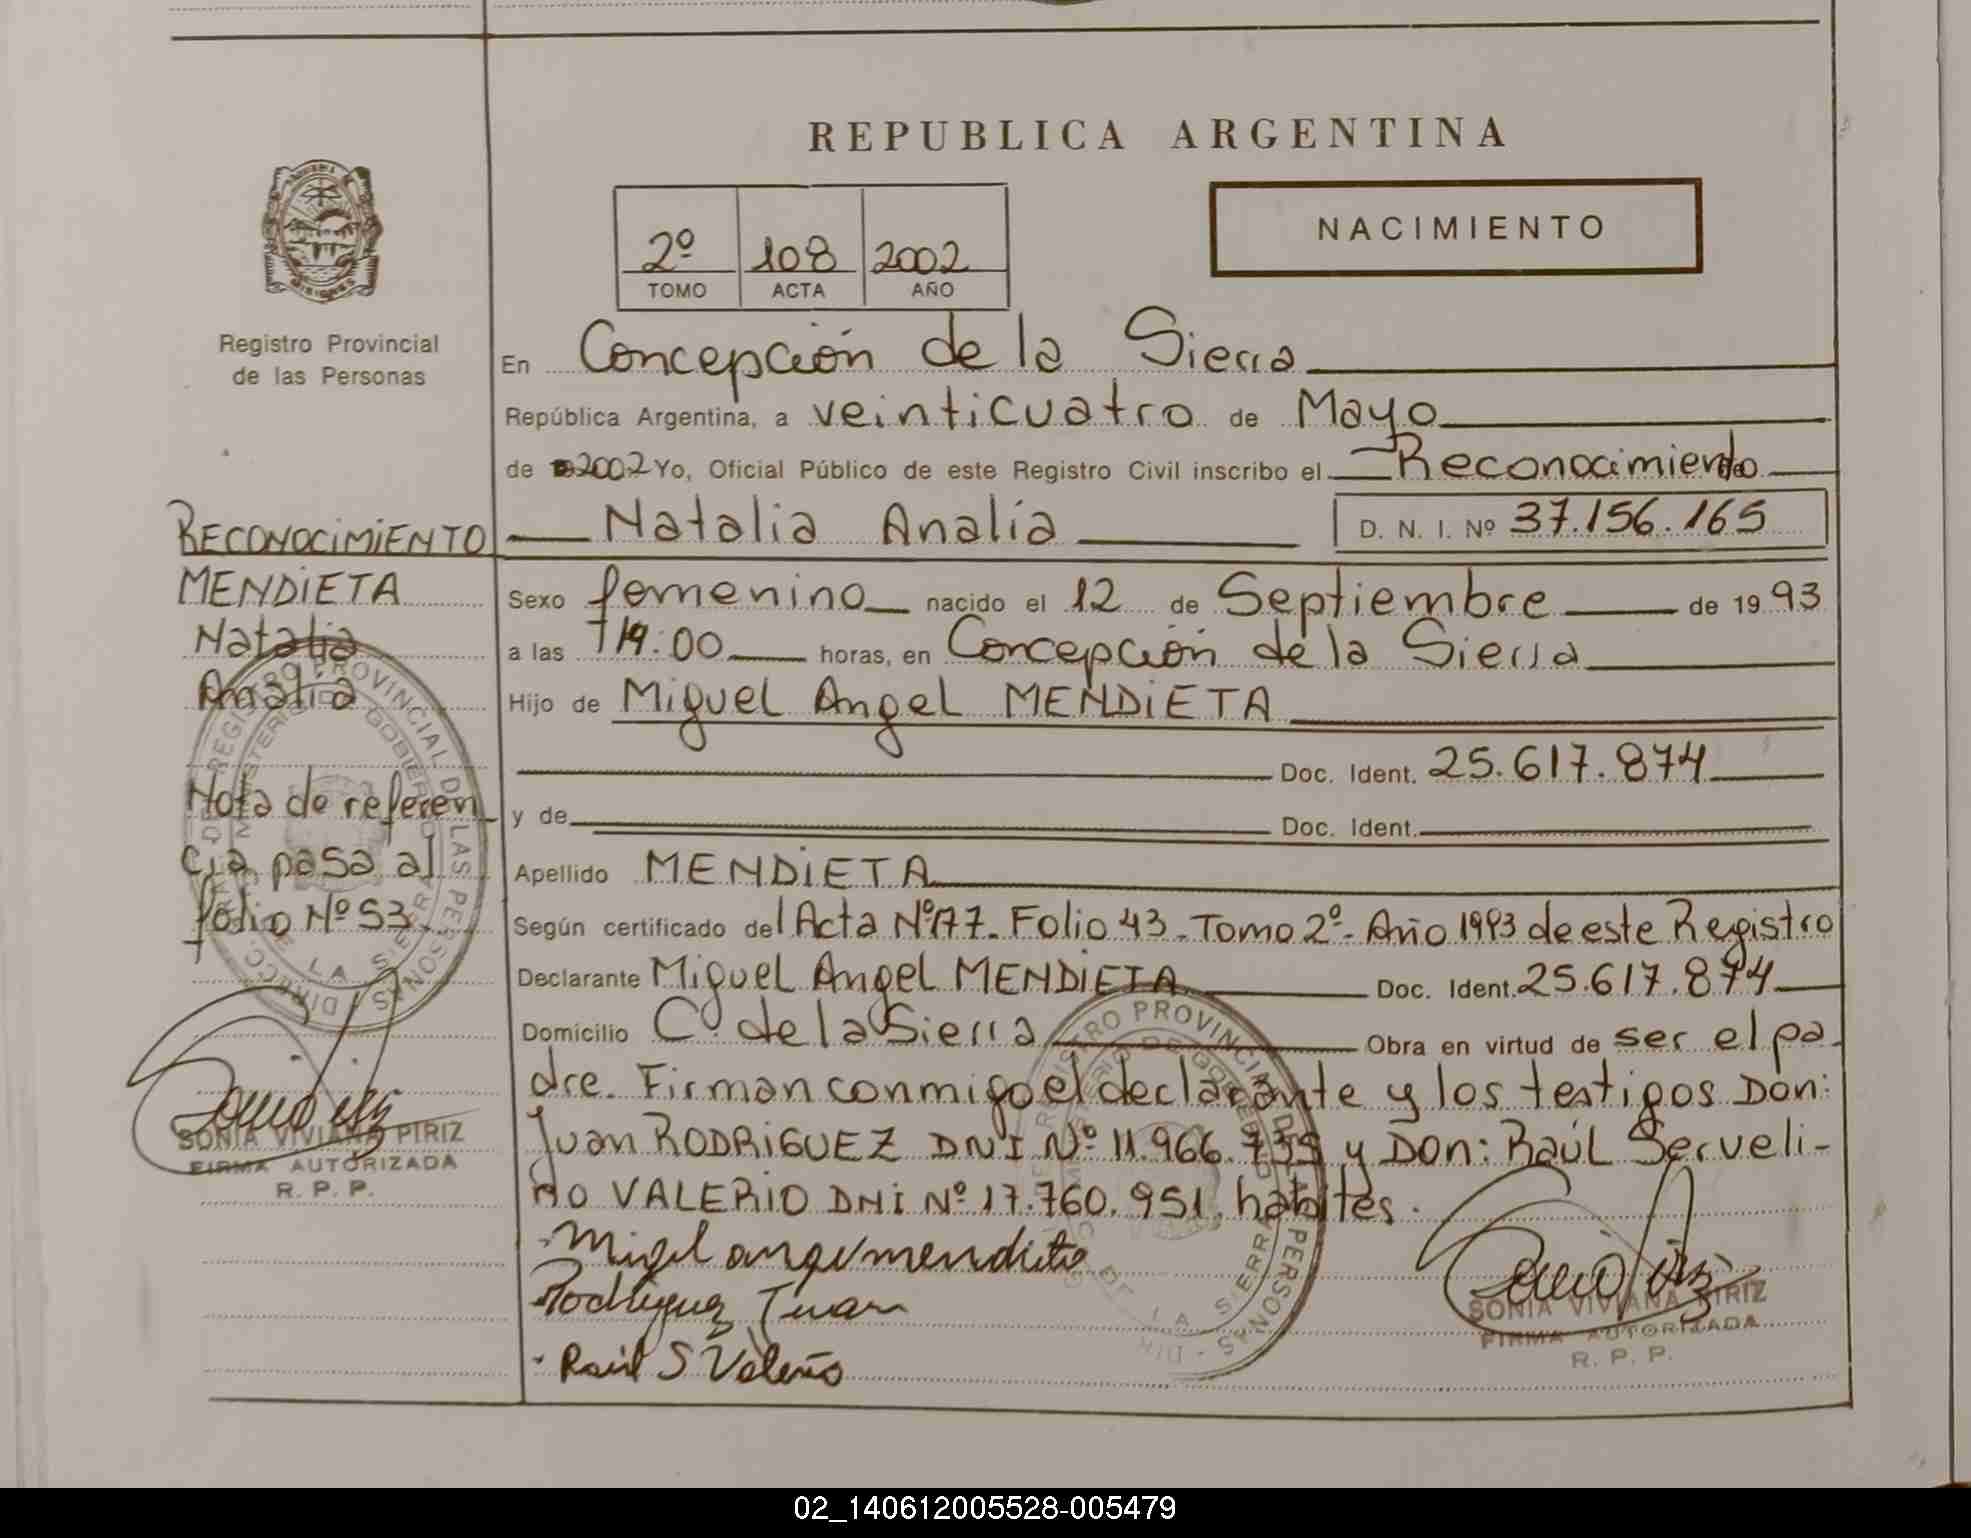 REPUBLICA ARGENTINA
NACIMIENTO
2º 108 2002
TOMO ACTA AÑO
Registro Provincial
de las Personas
En Concepción de la Sierra
República Argentina, a veinticuatro de Mayo
de 2002 Yo, Oficial Público de este Registro Civil inscribo el Reconocimiento
Natalia Analía D. N. I. Nº 37.156.165
Sexo femenino nacido el 12 de Septiembre de 19 93
a las 19:00 horas, en Concepción de la Sierra
Hijo de Miguel Angel MENDIETA
Doc. Ident. 25.617.874
y de Doc. Ident.
Apellido MENDIETA
Según certificado del Acta Nº177. Folio 43. Tomo 2º. Año 1993 de este Registro
Declarante Miguel Angel MENDIETA Doc. Ident. 25.617.874
Domicilio C. de la Sierra Obra en virtud de ser el pa
dre. Firman conmigo el declarante y los testigos Don:
Juan RODRIGUEZ DNI Nº 11.966.735 y Don: Raúl Serveli-
no VALERIO DNI Nº 17.760.951. habites.
Migel angel mendieta
Rodriguez Juan
Raúl S Valerio
SONIA VIVIANA PIRIZ
FIRMA AUTORIZADA
R. P. P.
RECONOCIMIENTO
MENDIETA
Natalia
Analía
Nota de referen
cia pasa al
folio Nº 53.
SONIA VIVIANA PIRIZ
FIRMA AUTORIZADA
R. P. P.
02_140612005528-005479